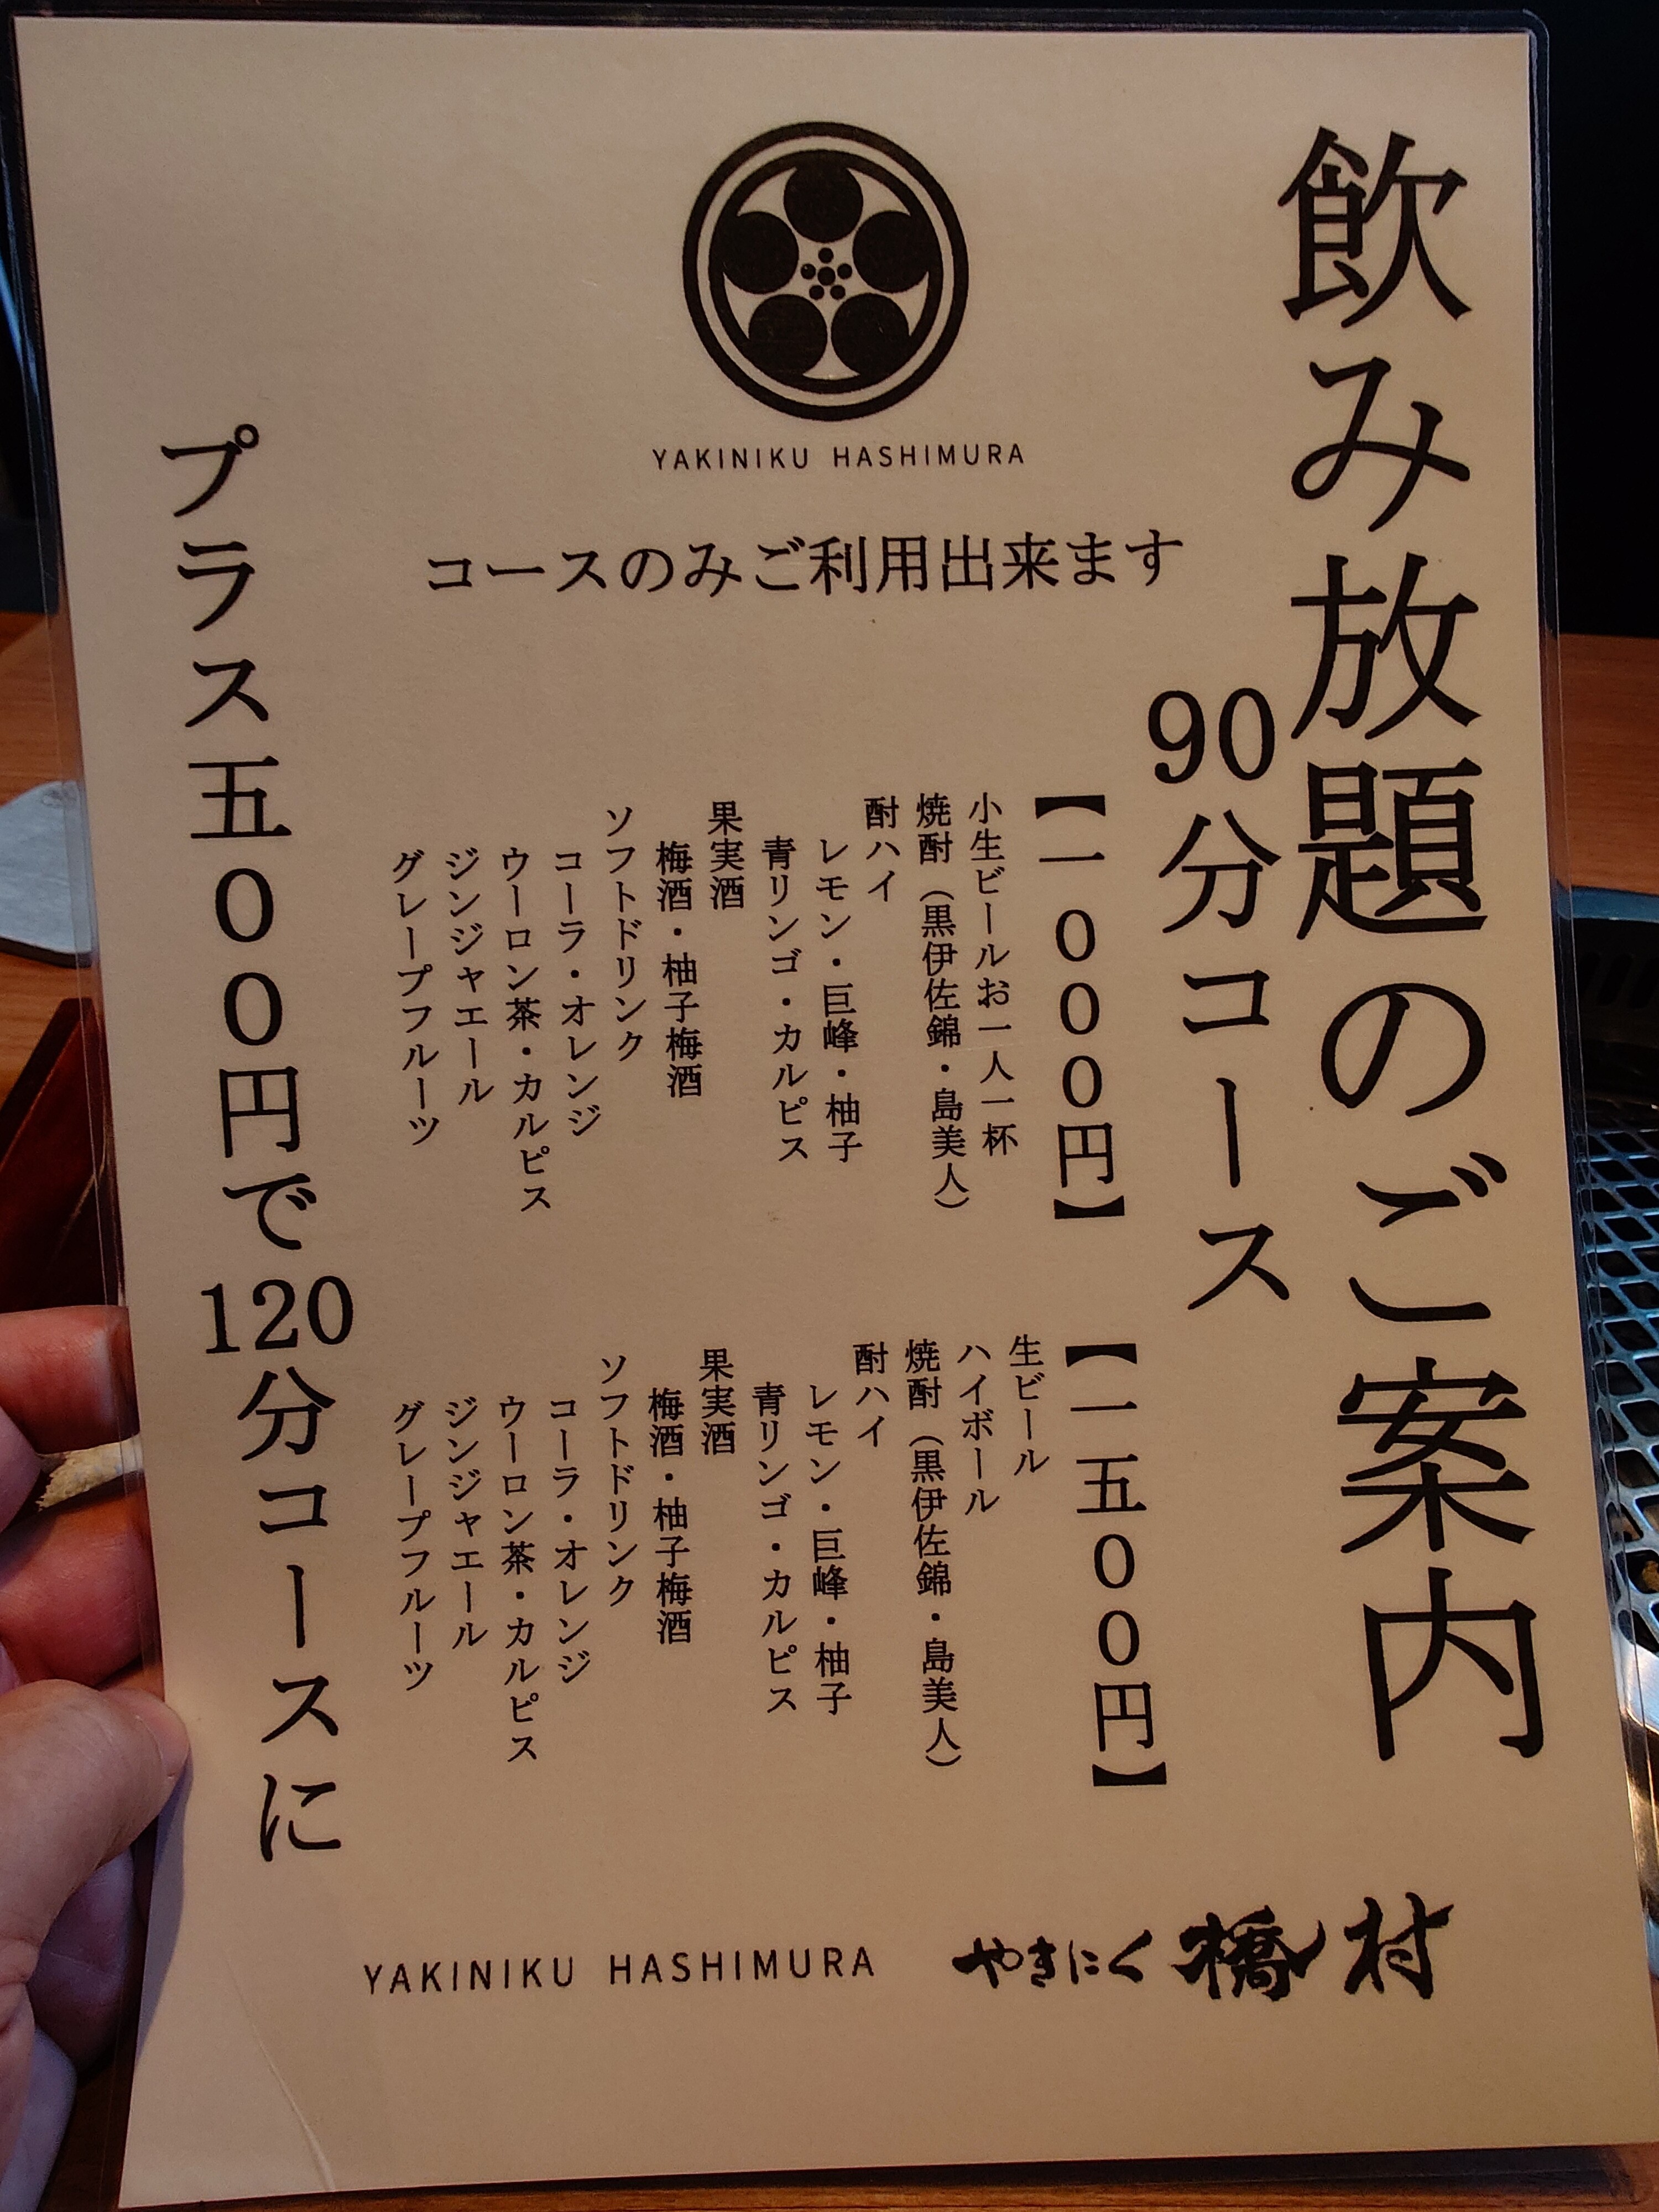 飲み放題のご案内
YAKINIKU HASHIMURA
コースのみご利用出来ます
90分コース
【一000円】
小生ビールお一人一杯
焼酎（黒伊佐錦・島美人）
酎ハイ
レモン・巨峰・柚子
青リンゴ・カルピス
果実酒
梅酒・柚子梅酒
ソフトドリンク
コーラ・オレンジ
ウーロン茶・カルピス
ジンジャエール
グレープフルーツ
【一五00円】
生ビール
ハイボール
焼酎（黒伊佐錦・島美人）
酎ハイ
レモン・巨峰・柚子
青リンゴ・カルピス
果実酒
梅酒・柚子梅酒
ソフトドリンク
コーラ・オレンジ
ウーロン茶・カルピス
ジンジャエール
グレープフルーツ
プラス五00円で120分コースに
YAKINIKU HASHIMURA
やきにく橋村